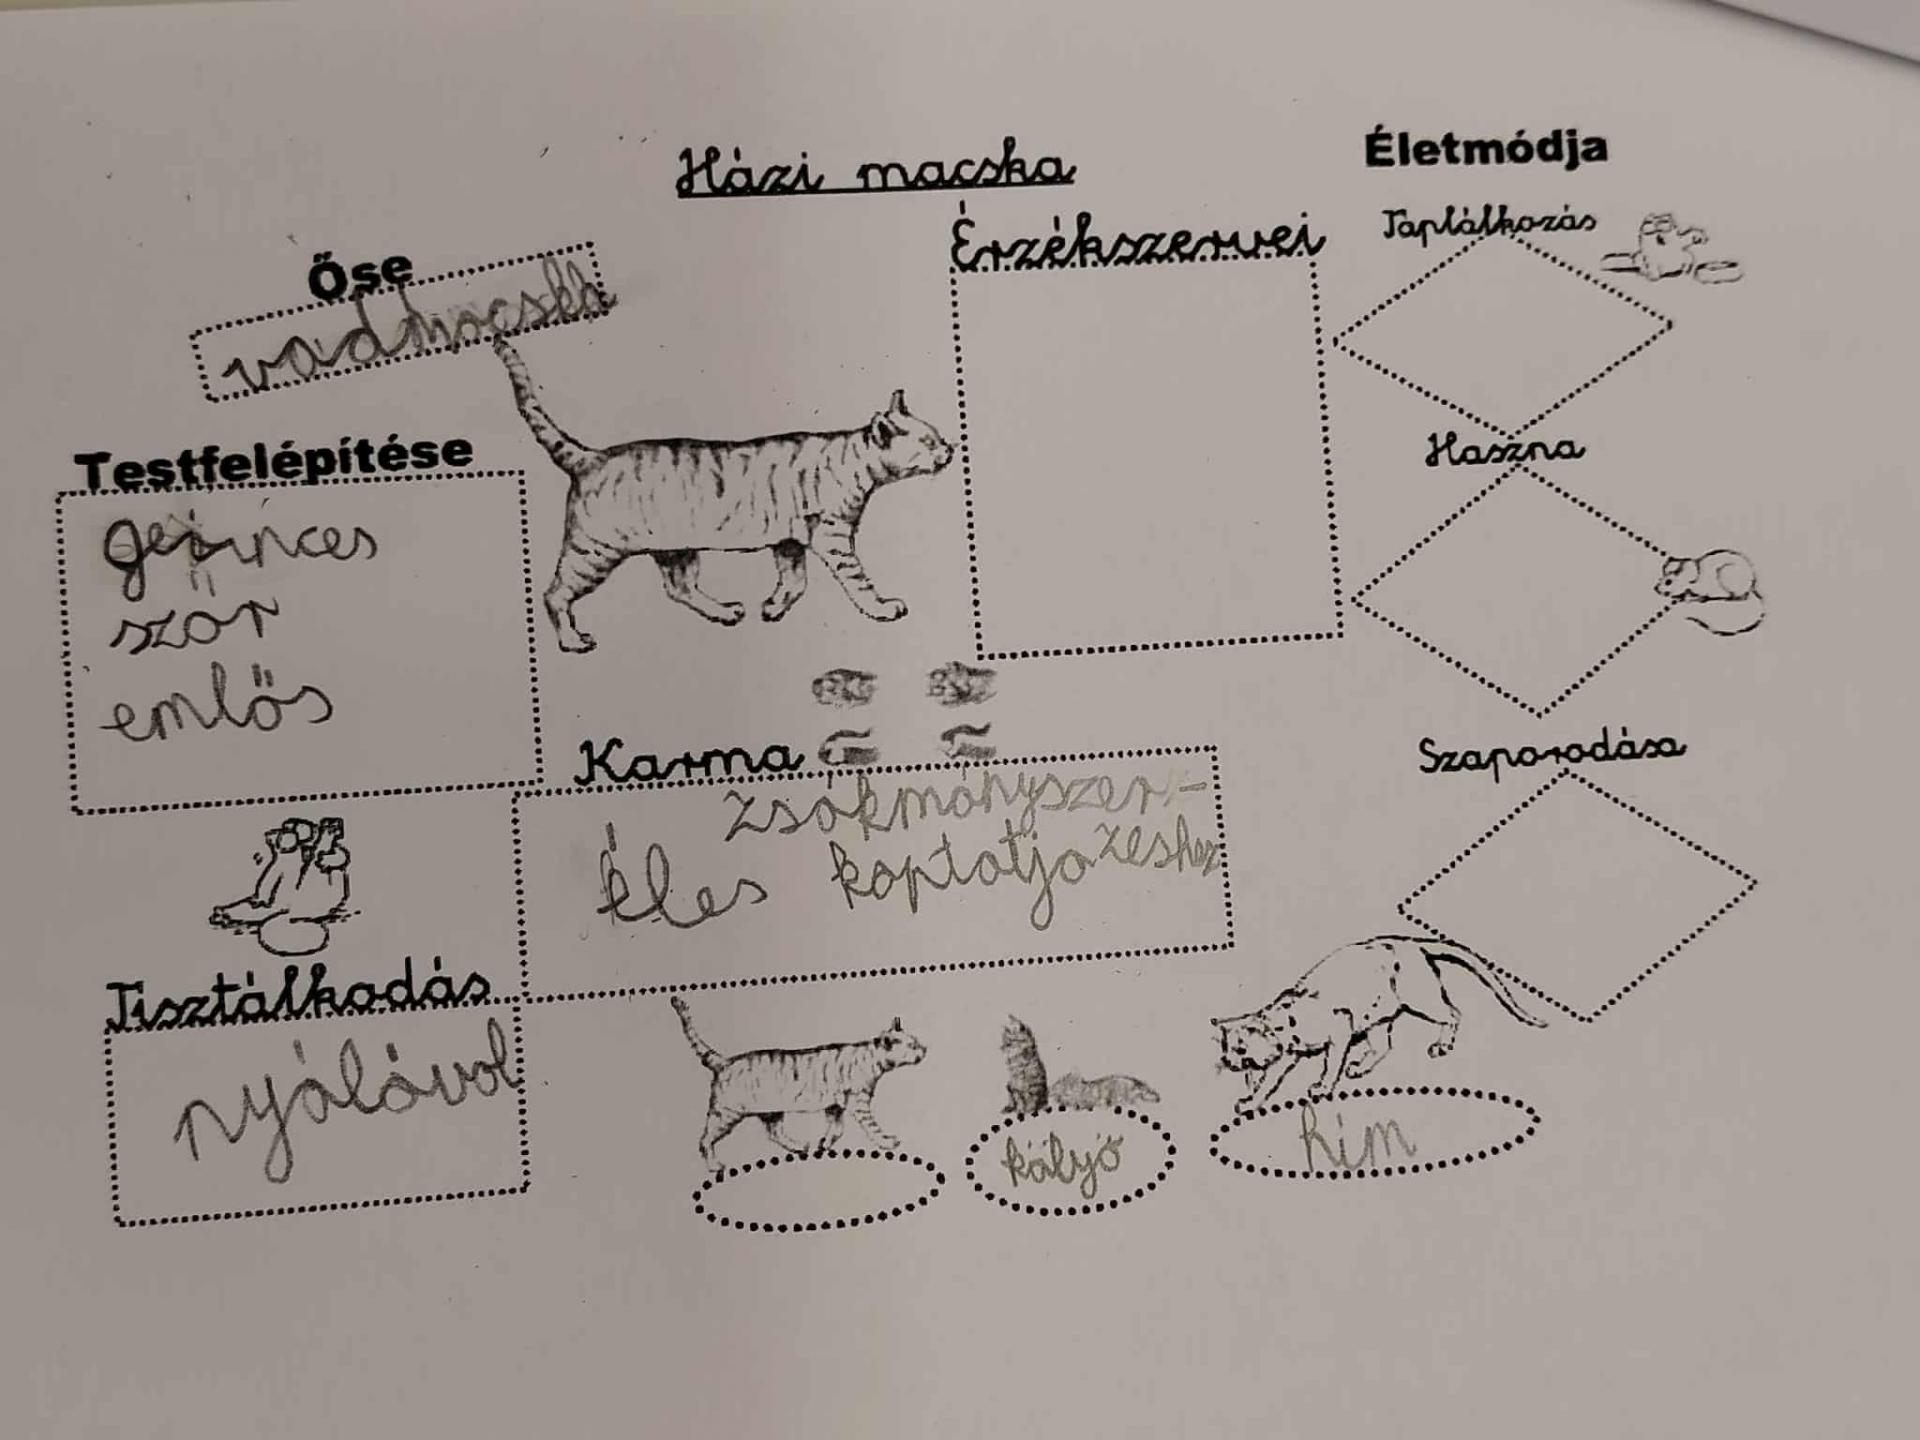 Házi macska
Őse
vadmacska
Testfelépítése
gerinces
szőr
emlős
Érzékszervei
Életmódja
Táplálkozás
Haszna
Szaporodása
Karma
zsákmányszer-
éles koptatja zéshez
Tisztálkodás
nyálával
kölyö
hím